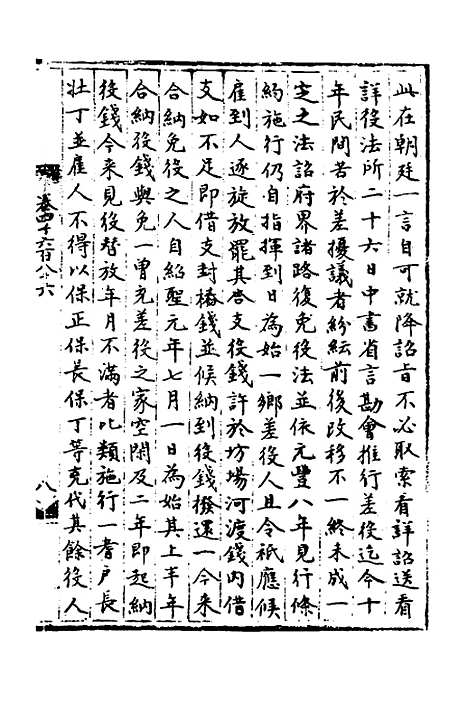 此在朝廷一言自可就降詔旨不必取索看詳詔送看
詳役法所二十六日中書省言勘會推行差役迄今十
年民間苦於差擾議者紛紜前後改移不一終未成一
定之法詔府界諸路復免役法並依元豐八年見行條
約施行仍自指揮到日為始一鄉差役人且令祗應候
雇到人逐旋放罷其合支役錢許於坊場河渡錢內借
支如不足即借支封樁錢並候納到役錢撥還一今來
合納免役之人自紹聖元年七月一日為始其上半年
合納役錢與免一曾充差役之家空閑及二年即起納
役錢今來見役替放年月不滿者比類施行一耆戶長
壯丁並雇人不得以保正保長保丁等充代其餘役人
卷四千六百八十六
八